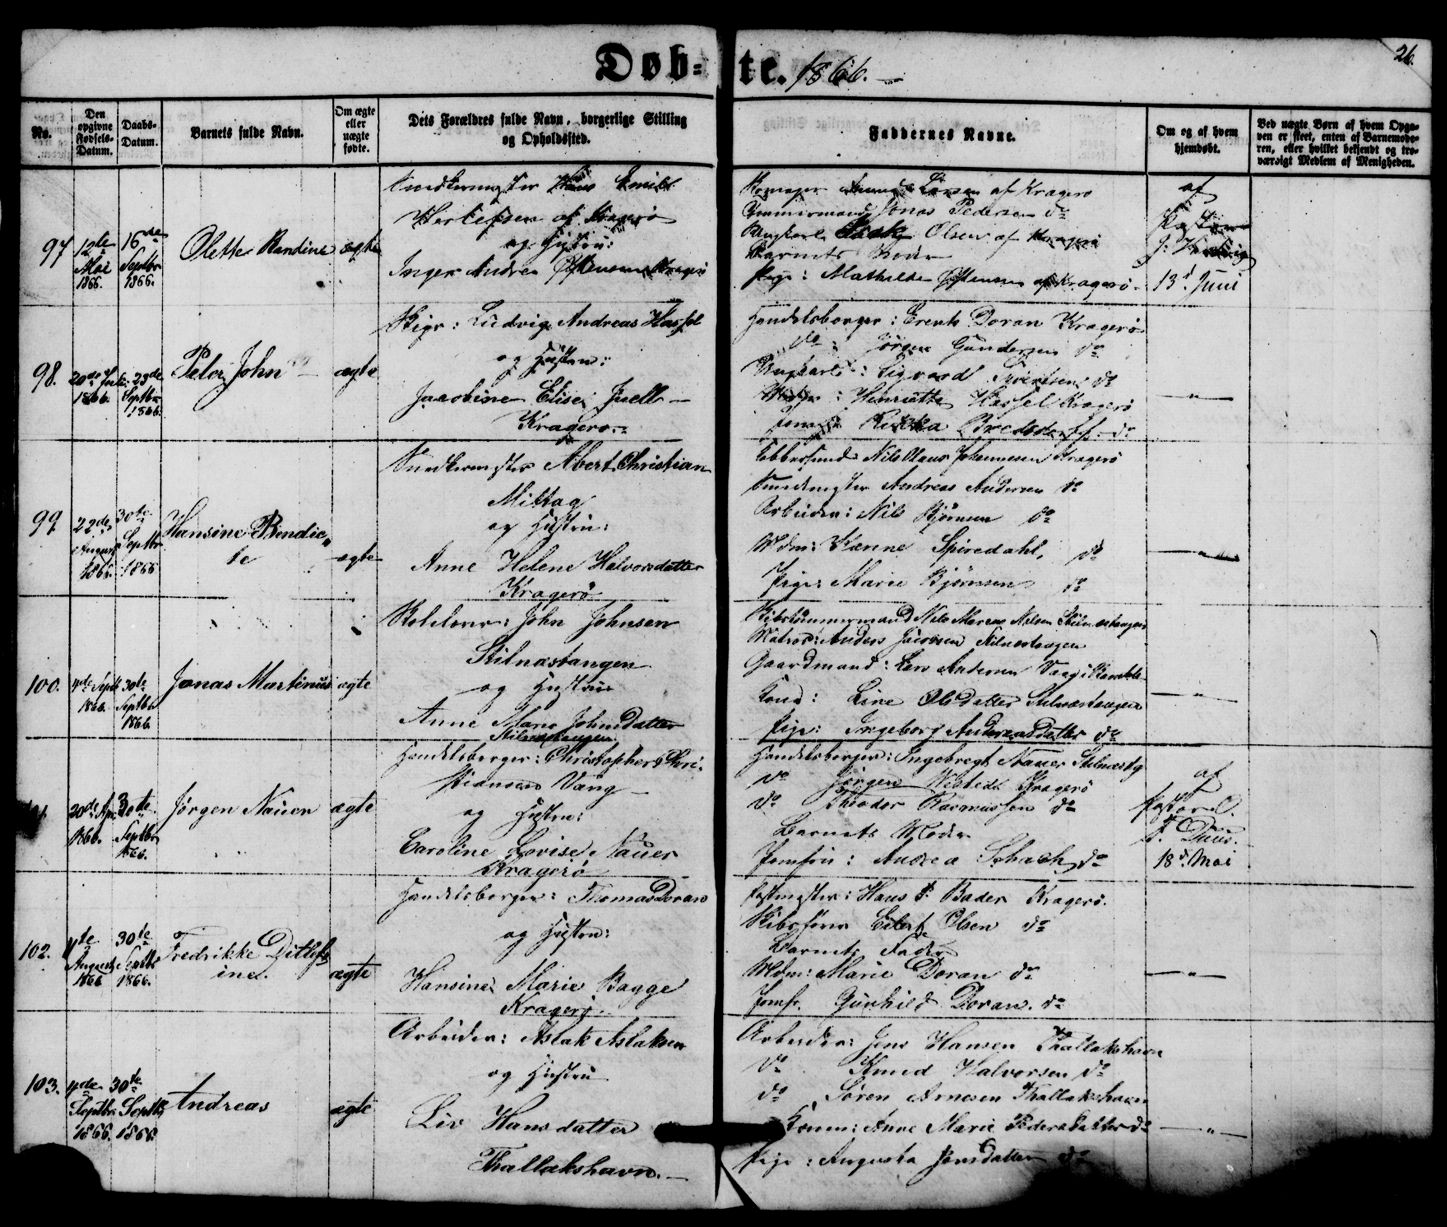 Døbte. 1866.
26.
No.
Den opgivne Fødsels-Datum.
Daabs-Datum.
Barnets fulde Navn.
Om ægte eller uægte fødte.
Dets Forældres fulde Navn, borgerlige Stilling og Opholdssted.
Faddernes Navne.
Om og af hvem hjemdøbt.
Ved uægte Børn af hvem Opga-
ven er skeet, enten af Barnemode-
ren, eller hvilket bekjendt og tro-
værdigt Medlem af Menigheden.
97
12te Mai 1866.
16de Septbr 1866.
Olette Randine
ægte
Snedkermester Hans Emil
af Kragerø
og Hustru:
Inger Andrea Kragerø
Larsen af Kragerø
Tømmermand Jonas Pedersen do
Ungkarl Olsen af Kragerø
Barnets Moder
Pige: Mathilde af Kragerø.
af
Pastor
J.
13d Juni
98.
20de 1866.
23de Septbr 1866.
Peter John
ægte
Skipr: Ludvig Andreas Hassel
og Hustru:
Jacobine Elise Juell
Kragerø.
Handelsborger: Doran Kragerø
do Jørgen Gundersen do
Ungkarl: Sivertsen do
Henriette Hassel Kragerø
do
— " —
99
22de August 1866.
30te Septbr 1866
Hansine Bendic-
te
ægte
Snedkermester Albert Christian
Mittag
og Hustru:
Anne Helene Halvorsdatter
Kragerø
Nils Olaus Johannesen Kragerø
Andreas Andersen do
Arbeider: Nils Bjørnsen do
Mdm: Spiredahl, do
Pige: Marie Bjørnsen do
— " —
100.
4de Septb 1866.
30te Septbr 1866.
Jonas Martinius
ægte
John Johnsen
Stilnæstangen
og Hustru
Anne Marie Johnsdatter
Stilnæstangen
Skibstømmermand Nils Marcus Nilsen Stilnæstangen
Matros: Anders Jacobsen Stilnæstangen
Gaardmand: Lars Andersen
Kone: Line Olsdatter Stilnæstangen
Pige: Ingeborg Andreasdatter do
— " —
20de Apr. 1866.
30te Septbr 1866.
Jørgen Nauer
ægte
Handelsborger: Christopher Chri-
stiansen Vang
og Hustru:
Caroline Lovise Nauer
Kragerø
Handelsborger: Ingebregt Nauer
do Jørgen Kragerø
do Theodor Rasmussen do
Barnets Moder
Jomfru: Andrea Schach do
af
Pastor
18d. Mai
102.
August 1866
30te Septbr 1866.
Fredrikke Ditlef-
ine.
ægte
Handelsborger: Thomas Doran
og Hustru:
Hansine Marie Bagge
Kragerø.
Postmester: Hans P. Bader Kragerø.
Skibsfører Eilert Olsen do
Barnets Fader
Mdm: Marie Doran do
Jomfr. Gunhild Doran. do
— " —
103.
4de Septbr 1866.
30te Septbr 1866
Andreas
ægte
Arbeider: Aslak Aslaksen
og Hustru
Liv Hansdatter
Thallakshavn.
Arbeider: Jens Hansen Thallakshavn
do Knud Halvorsen do
do Søren Arnesen Thallakshavn
Kone: Anne Marie Pedersdatter do
Pige: Augusta Jensdatter do
— " —